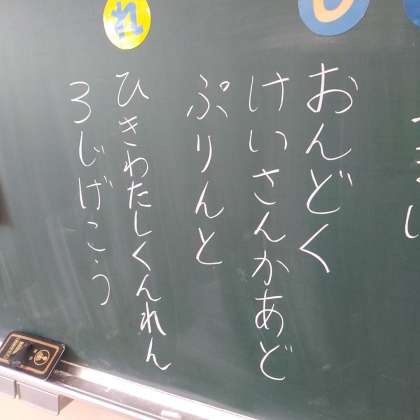 おんどく
けいさんかあど
ぷりんと
れ
ひきわたしくんれん
3じげこう